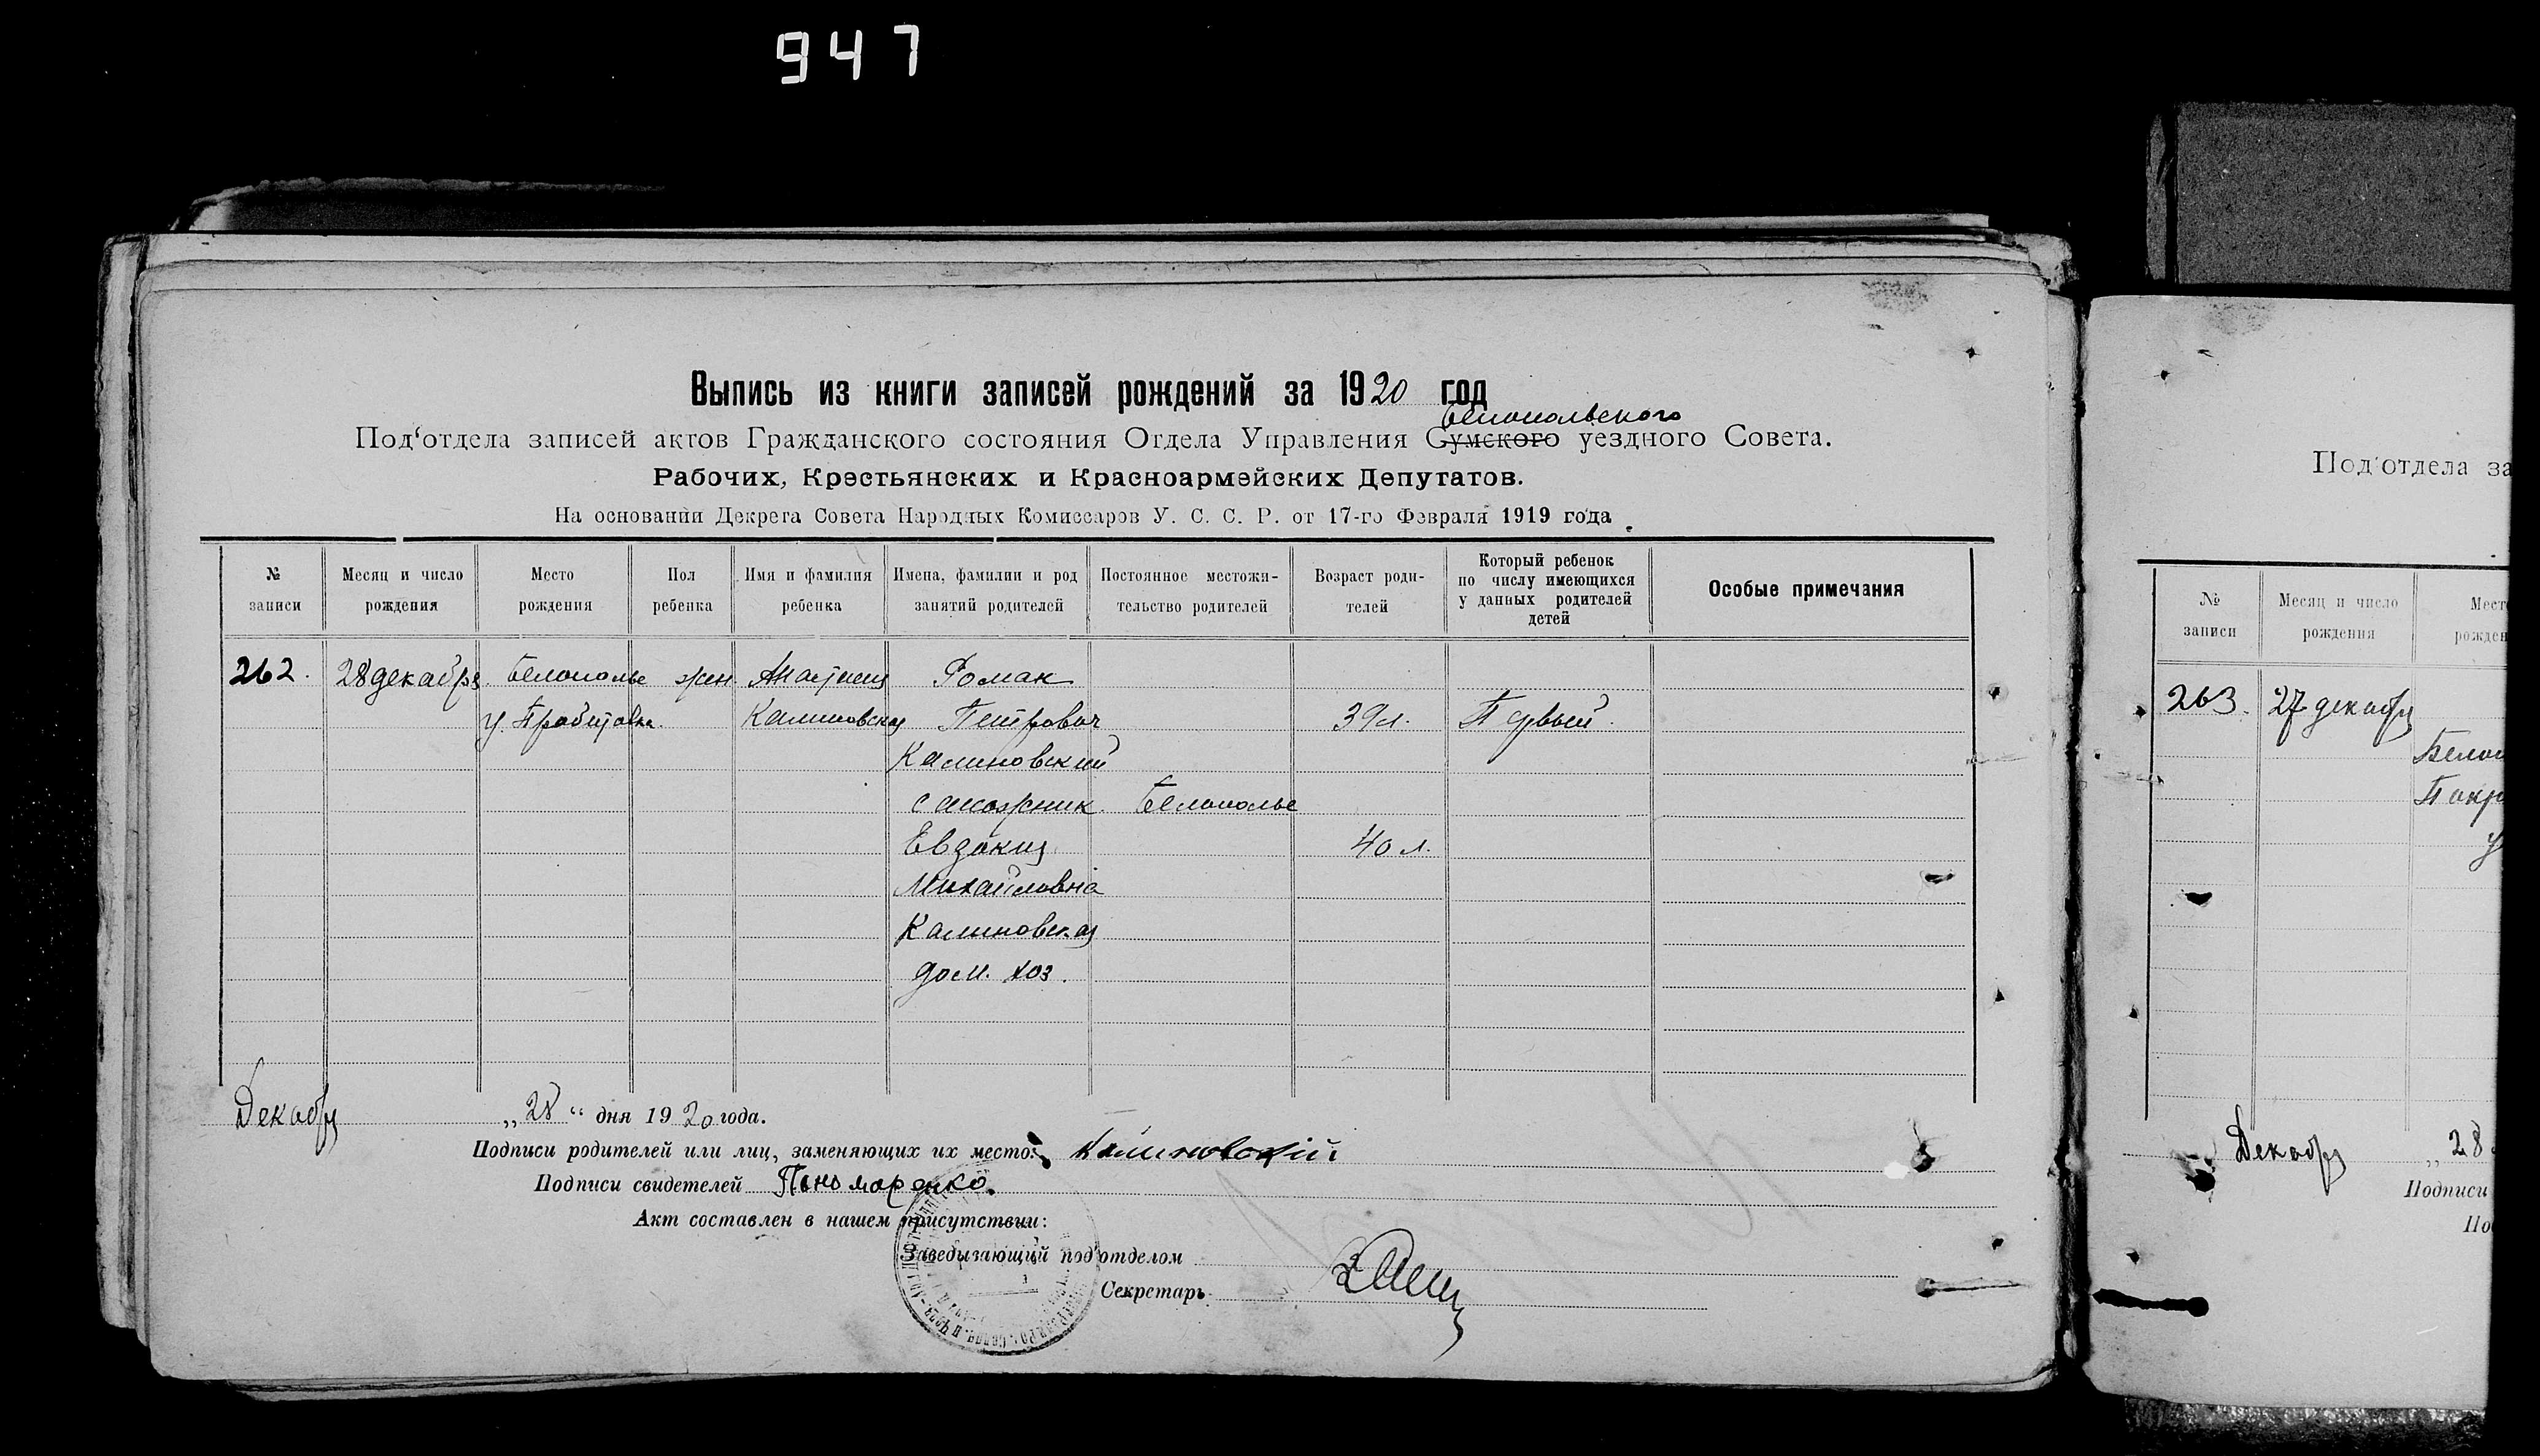 947
Выпись из книги записей рождений за 1920 год
Белопольского
Под‘отдела записей актов Гражданского состояния Отдела Управления Сумского уездного Совета.
Рабочих, Крестьянских и Красноармейских Депутатов.
На основании Декрета Совета Народных Комиссаров У. С. С. Р. от 17-го Февраля 1919 года
№ записи
Месяц и число рождения
Место рождения
Пол ребенка
Имя и фамилия ребенка
Имена, фамилии и род занятий родителей
Постоянное местожительство родителей
Возраст родителей
Который ребенок по числу имеющихся у данных родителей детей
Особые примечания
262. 28 декабря Белополье жен Анастасия Роман
у. Калиновская Петрович 39 л. Первый.
Калиновский
сапожник. Белополье
Евдокия 40 л.
Михайловна
Калиновская
дом. хоз.
Декабря „28“ дня 1920 года.
Подписи родителей или лиц, заменяющих их место: Калиновский
Подписи свидетелей Пономаренко.
Акт составлен в нашем присутствии:
Заведывающий под‘отделом
Секретарь
Под‘отдела за
№ записи
Месяц и число рождения
Мест
рожден
263. 27 декабря
Бело
Покр
у
Декабря „28
Подписи
По